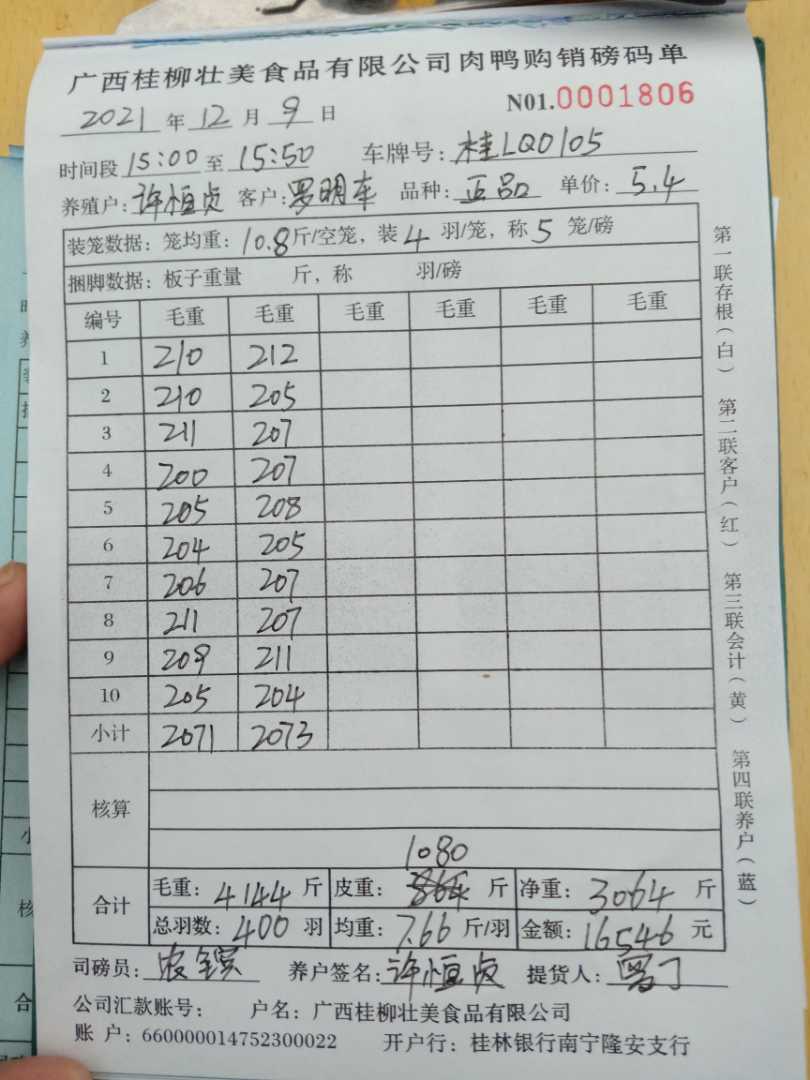 广西桂柳壮美食品有限公司肉鸭购销磅码单
2021 年 12 月 9 日 N01.0001806
时间段 15:00 至 15:50 车牌号: 桂LQ0105
养殖户: 许恒贞 客户: 罗明车 品种: 正品 单价: 5.4
装笼数据: 笼均重: 10.8 斤/空笼, 装 4 羽/笼, 称 5 笼/磅
捆脚数据: 板子重量 斤, 称 羽/磅
编号 毛重 毛重 毛重 毛重 毛重 毛重
1 210 212
2 210 205
3 211 207
4 200 207
5 205 208
6 204 205
7 206 207
8 211 207
9 209 211
10 205 204
小计 2071 2073
核算
1080
合计 毛重: 4144 斤 皮重: 864 斤 净重: 3064 斤
总羽数: 400 羽 均重: 7.66 斤/羽 金额: 16546 元
司磅员: 养户签名: 许恒贞 提货人:
公司汇款账号: 户名: 广西桂柳壮美食品有限公司
账 户: 660000014752300022 开户行: 桂林银行南宁隆安支行
第一联存根(白) 第二联客户(红) 第三联会计(黄) 第四联养户(蓝)